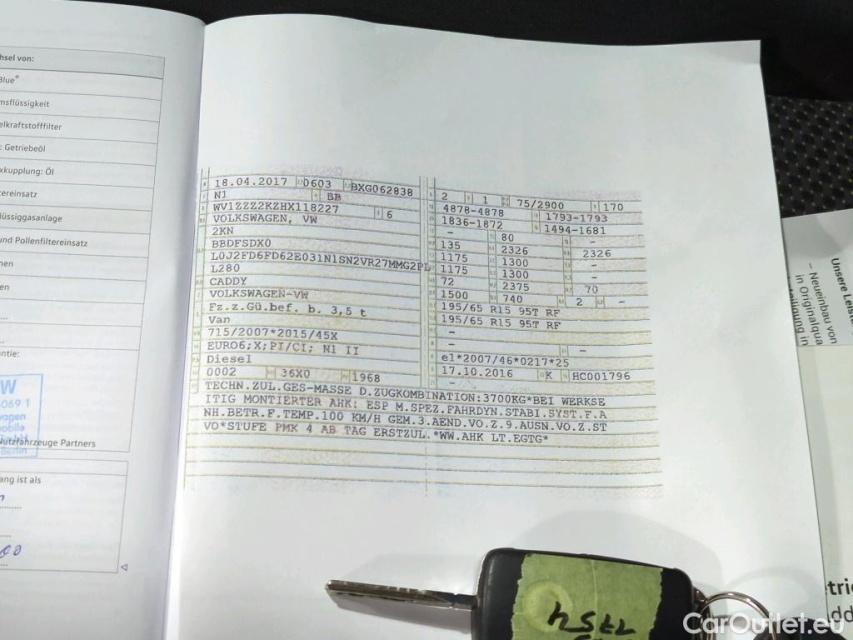 hsel von:
Blue®
msflüssigkeit
elkraftstofffilter
: Getriebeöl
xkupplung: Öl
tereinsatz
lüssiggasanlage
und Pollenfiltereinsatz
nen
en
ntie:
W
069 1
wagen
obile
Berlin
Nutzfahrzeuge Partners
ang ist als
18.04.2017 0603 BXG062838
N1 BB
WV1ZZZ2KZHX118227 6
VOLKSWAGEN, VW
2KN
BBDFSDX0
L0J2FD6FD62E031N1SN2VR27MMG2PL
L280
CADDY
VOLKSWAGEN-VW
Fz.z.Gü.bef. b. 3,5 t
Van
715/2007*2015/45X
EURO6;X;PI/CI; N1 II
Diesel
0002 36X0 1968
2 1 75/2900 170
4878-4878 1793-1793
1836-1872 1494-1681
- 80 -
135 2326 2326
1175 1300 -
1175 1300 -
72 2375 70
1500 740 2 -
195/65 R15 95T RF
195/65 R15 95T RF
-
- -
e1*2007/46*0217*25
17.10.2016 K HC001796
TECHN.ZUL.GES-MASSE D.ZUGKOMBINATION:3700KG*BEI WERKSE
ITIG MONTIERTER AHK: ESP M.SPEZ.FAHRDYN.STABI.SYST.F.A
NH.BETR.F.TEMP.100 KM/H GEM.3.AEND.VO.Z.9.AUSN.VO.Z.ST
VO*STUFE PMK 4 AB TAG ERSTZUL.*WW.AHK LT.EGTG*
Unsere Leist
- Neueinbau von
in Originalqua
CarOutlet.eu